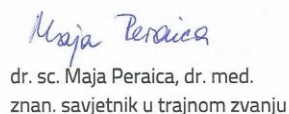 Maja Peraica
dr. sc. Maja Peraica, dr. med.
znan. savjetnik u trajnom zvanju